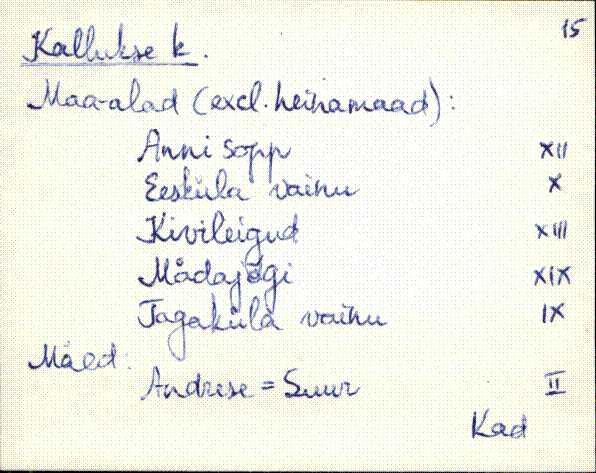 15
Kallukse k.
Maa-alad (excl. heinamaad):
Anni sopp XII
Eesküla vainu X
Kivileigud XIII
Mädajõgi XIX
Tagaküla vainu IX
Mäed:
Andrese = Suur II
Kad